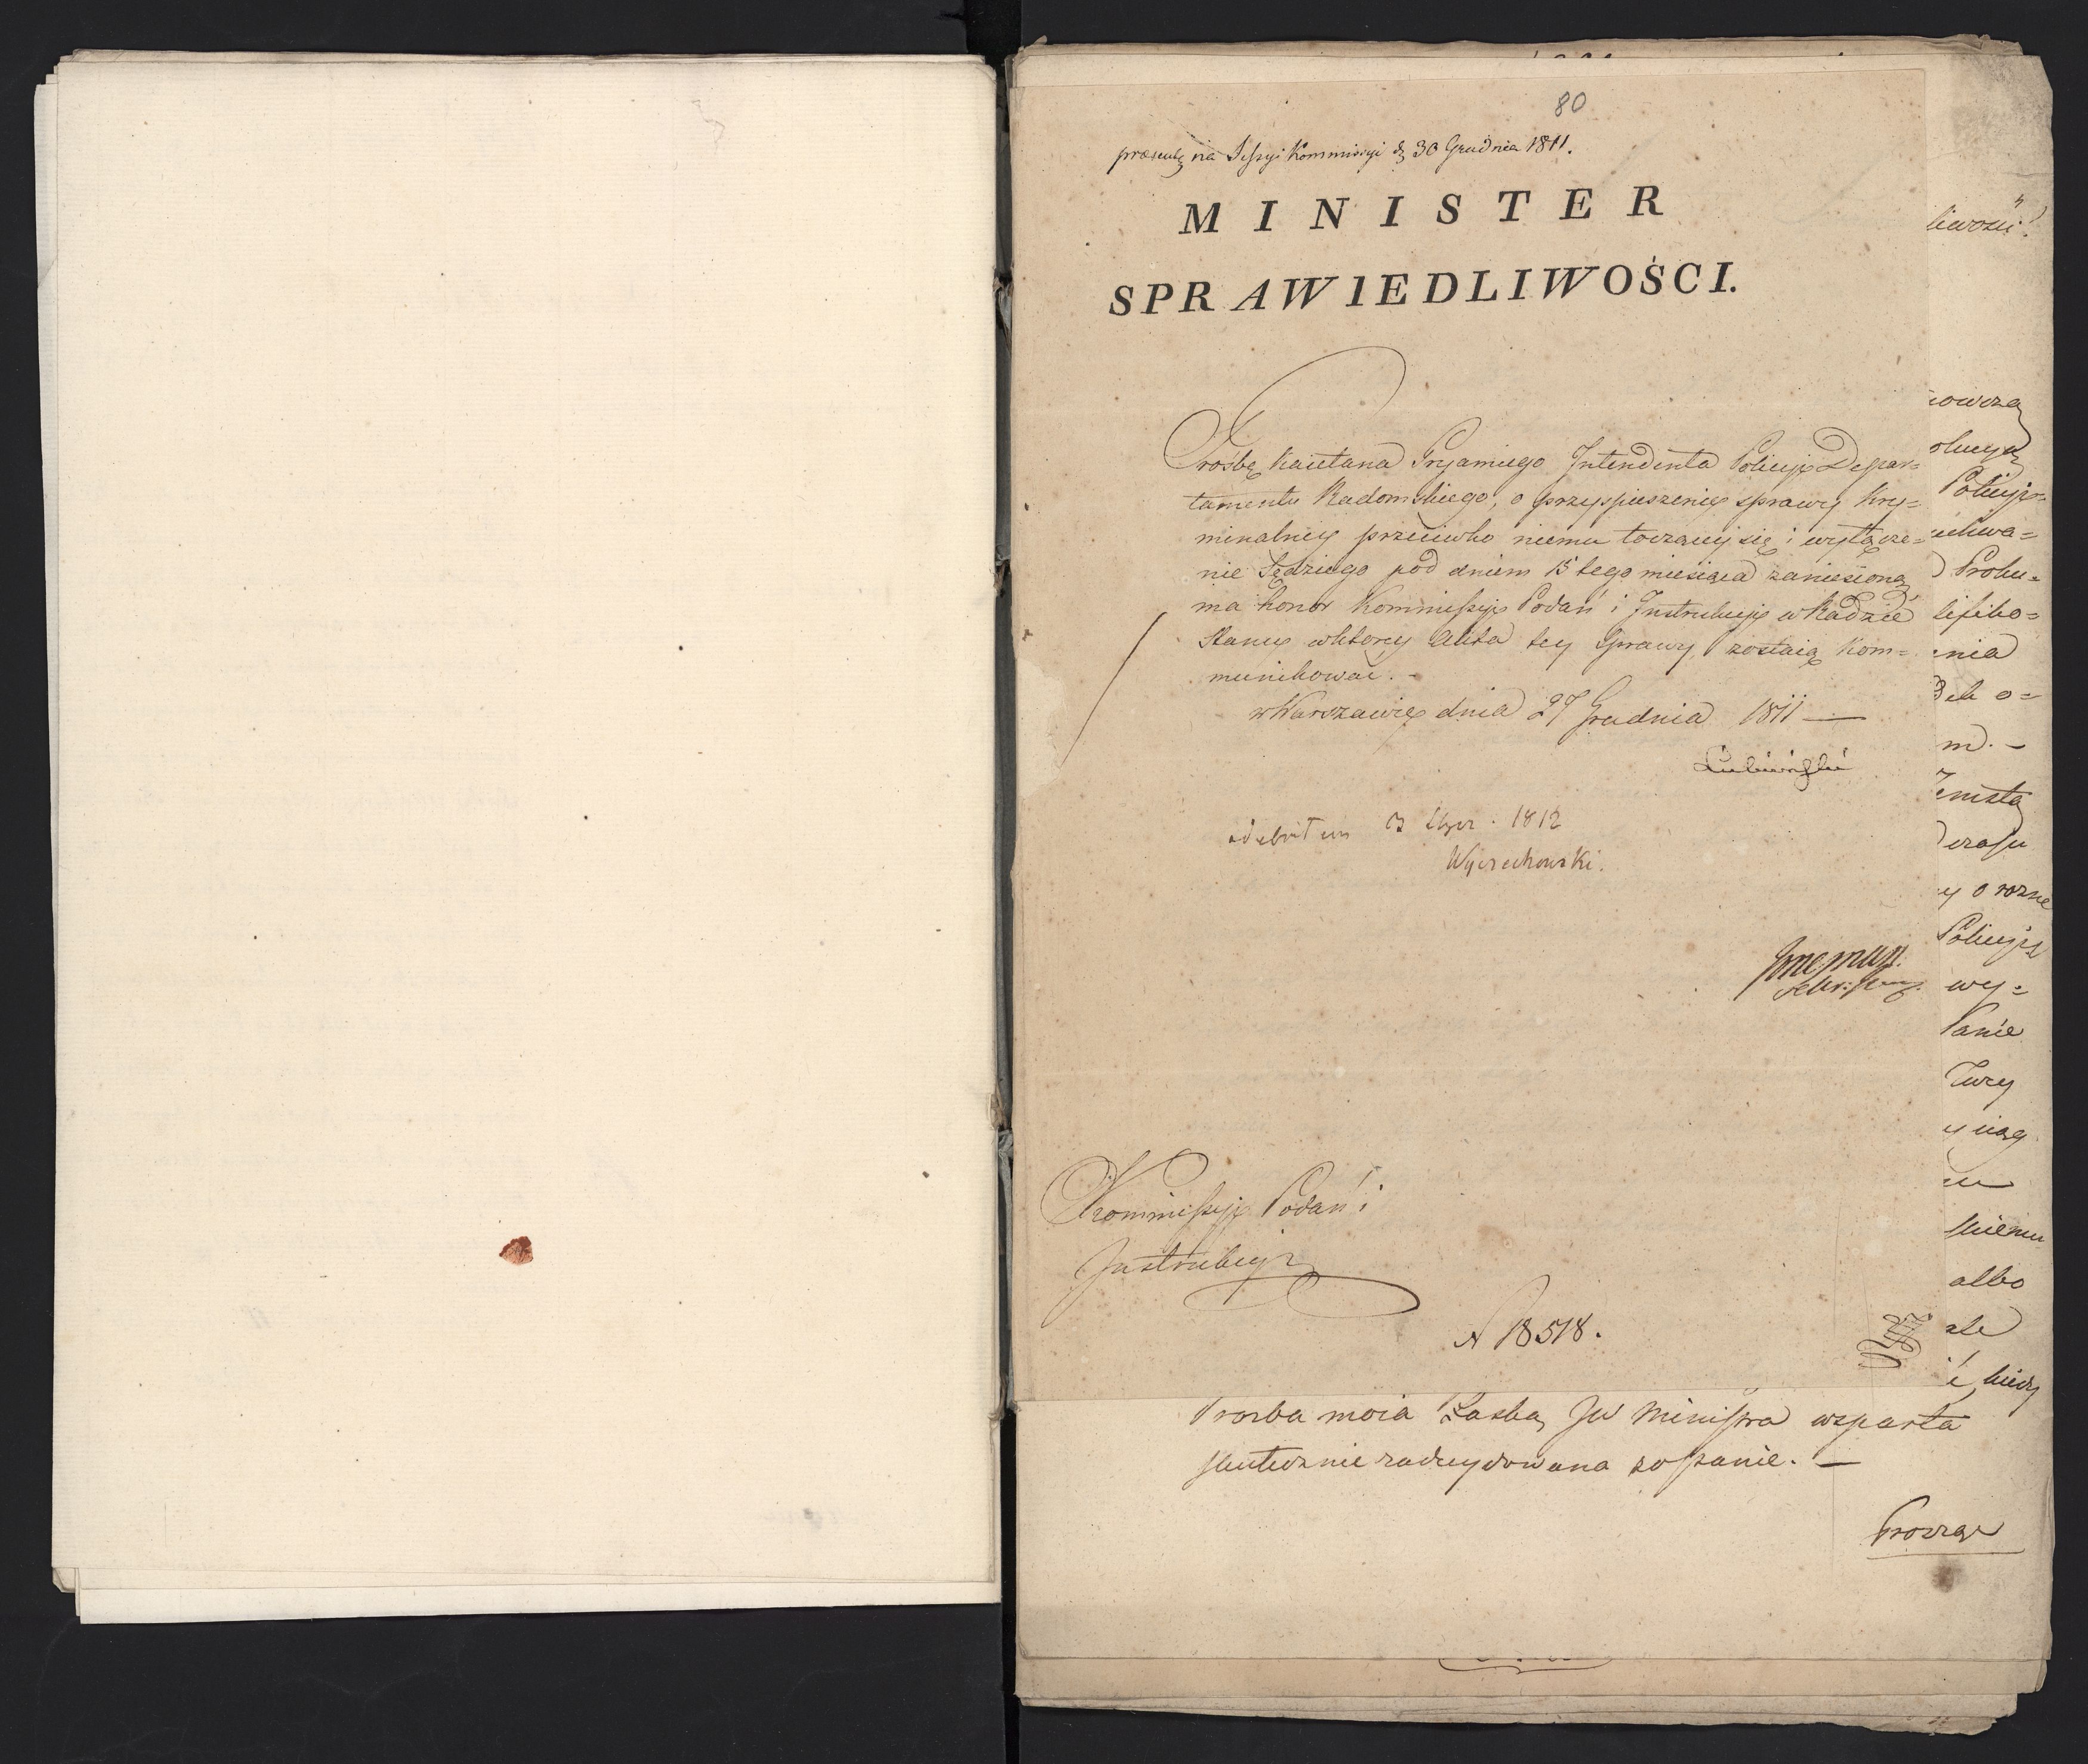 80
præsent. na Sessyi Kommissyi d. 30 Grudnia 1811.
MINISTER
SPRAWIEDLIWOŚCI.
Prośbę Kaietana Pryamiego Intendenta Policyi Depar=
tamentu Radomskiego, o przyspieszenie sprawy Kry=
minalney przeciwko niemu toczącey się i wyłącze=
nie Sędziego pod dniem 15 tego miesiąca zaniesioną
ma honor Kommissyi Podań i Instrukcyi w Radzie
Stanu w ktorey Akta tey Sprawy zostaią kom=
munikować. -
w Warszawie dnia 27 Grudnia 1811 —
Łubieński
odebrałem 3 Stycz. 1812
Wyczechowski.
Kommissyi Podań i
Instrukcyi
N 18518.
Prozba moia Łaską JW Ministra wsparta
skutecznie zadecydowana zostanie. —
Proszę
liwości!
Policyi=
nia
albo
Policyi
wy=
y o rozne